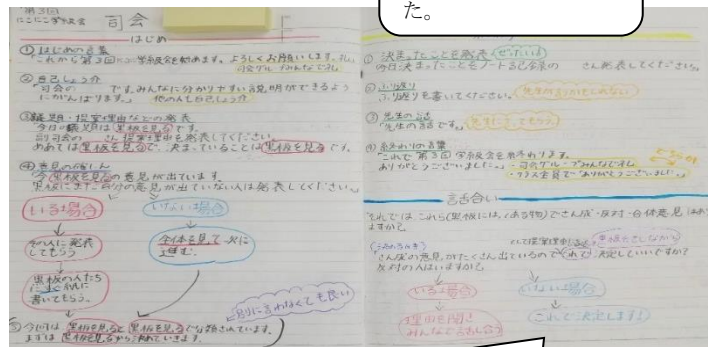 た。
第3回
にこにこ学級会 司会
はじめ
① はじめの言葉
「これから第3回にこにこ学級会を始めます。よろしくお願いします。」
司会グループみんなで礼
② 自己しょう介
「司会の　　です。みんなに分かりやすい説明ができるよう
にがんばります。」 他の人も自己しょう介
③議題・提案理由などの発表
「今日の議題は黒板を見るです。
副司会の　　さん、提案理由を発表してください。
めあては黒板を見るで、決まっていることは黒板を見るです。
④意見の確にん
「今黒板を見るの意見が出ています。
黒板にまだ自分の意見が出ていない人は発表してください。」
いる場合
いない場合
その人に発表
してもらう
全体を見て次に
進む。
黒板の人たち
書いてもらう。
別に言わなくても良い
⑤今回は黒板を見ると黒板を見るで分類されています。
まずは黒板を見るから決めていきます。
① 決まったことを発表 ぜったい!
今日決まったことをノート記録の　　さん発表してください。
② ふり返り
ふり返りを書いてください。
③ 先生の話
「先生の話です。」
④ 終わりの言葉
「これで第3回学級会を終わります。
ありがとうございました。」 ・司会グループみんなで礼
・クラス全員で「ありがとうございました。」
話合い
それでは、これら(黒板には、くある物)でさんせい・反対・合体意見はあり
ますか?
さんせいの意見がたくさん出ているのでこれで決定していいですか?
反対の人はいますか?
いる場合
いない場合
理由を聞き
みんなで話し合う
これで決定します!